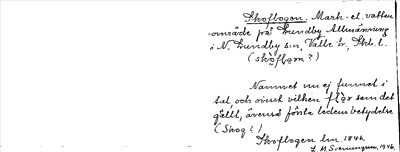 Skofbogen. Mark- el. vatten-
område på Lundby Allmänning
i N. Lundby s:n, Valle hd, Skb. l.
(skòfbơn?)
Namnet nu ej funnet i
tal, och ovisst vilken f som det
gällt, även förste ledens betydelse
(Skog?)
Skofbogen hm 1846.
1946.